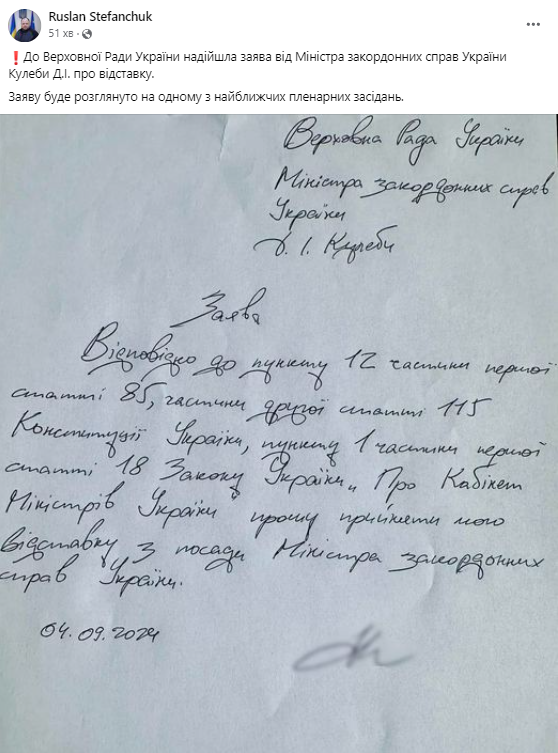 Ruslan Stefanchuk
51 хв ·
❗До Верховної Ради України надійшла заява від Міністра закордонних справ України
Кулеби Д.І. про відставку.
Заяву буде розглянуто на одному з найближчих пленарних засідань.
Верховна Рада України
Міністра закордонних справ
України
Д. І. Кулеби
Заява
Відповідно до пункту 12 частини першої
статті 85, частини другої статті 115
Конституції України, пункту 1 частини першої
статті 18 Закону України „Про Кабінет
Міністрів України" прошу прийняти мою
відставку з посади Міністра закордонних
справ України.
04.09.2024